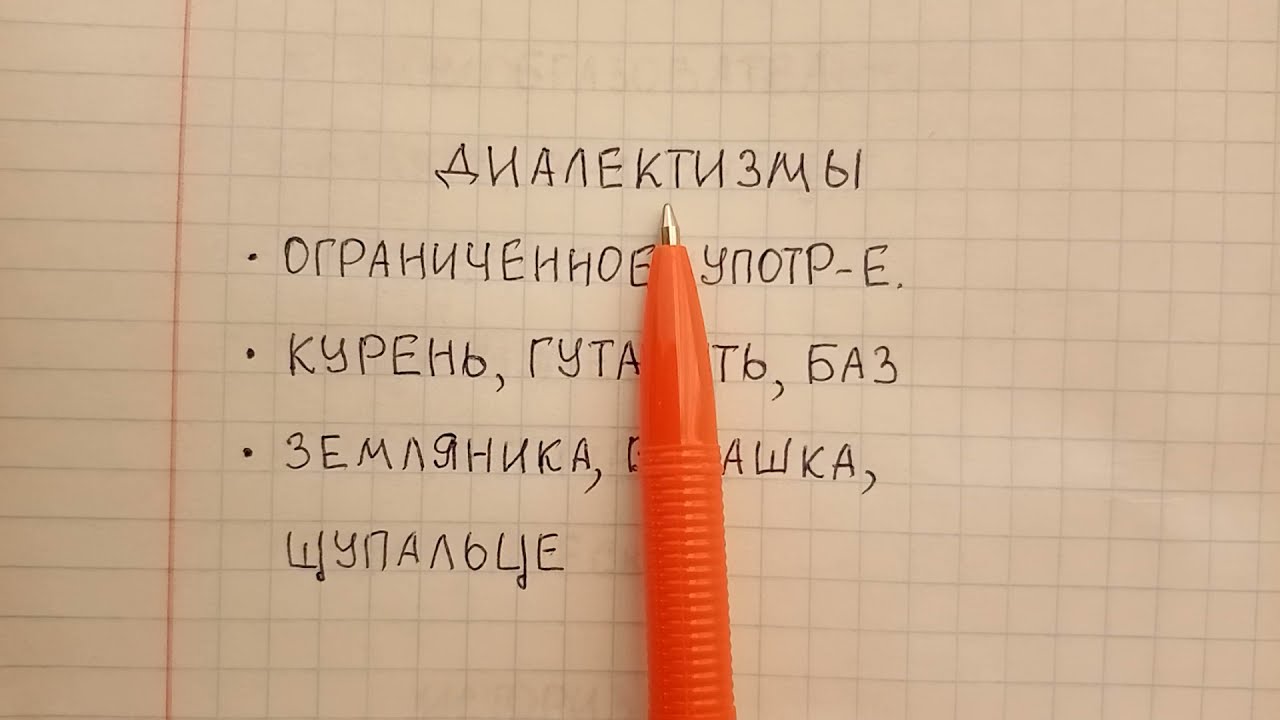 ДИАЛЕКТИЗМЫ
· ОГРАНИЧЕННОЕ УПОТР-Е.
· КУРЕНЬ, БАЗ
· ЗЕМЛЯНИКА,
ЩУПАЛЬЦЕ